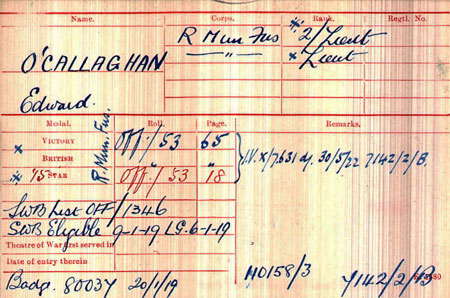 Name. Corps. Rank. Regtl. No.
R Mun Fus * 2/Lieut
" * Lieut
O'CALLAGHAN
Edward.
Medal. Roll. Page. Remarks.
R. Mun. Fus.
* VICTORY OFF/53 65
BRITISH " "
* 15 STAR OFF/53 18
IV. X/7631 d/. 30/5/22 7142/2/B.
SWB List OFF/1346
SWB Eligible 9-1-19 LS. 6-1-19
Theatre of War first served in
Date of entry therein
HO158/3 7142/2/B
Badge. 80037 20/1/19